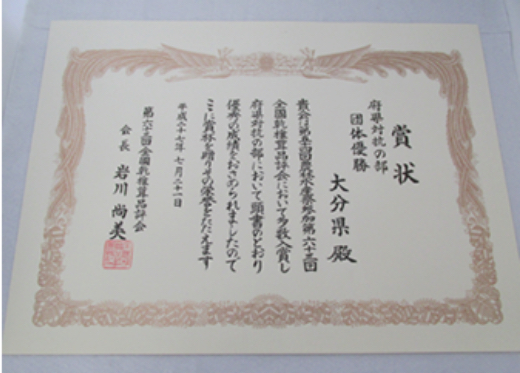 賞状
府県対抗の部
団体優勝
大分県殿
全国乾椎茸品評会において多数入賞し
府県対抗の部において頭書のとおり
優秀の成績をおさめられましたので
ここに賞杯を贈りその栄誉をたたえます
平成二十七年七月二十一日
第六十三回全国乾椎茸品評会
会長 岩川尚美